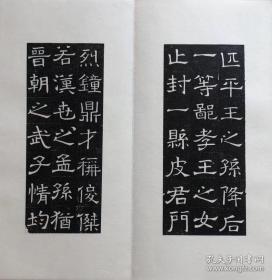 匹平王之孫降后
一等鄙孝王之女
止封一縣皮君門
烈鐘鼎才稱俊傑
若漢世之孟孫猶
晉朝之武子情均
孔夫子旧书网